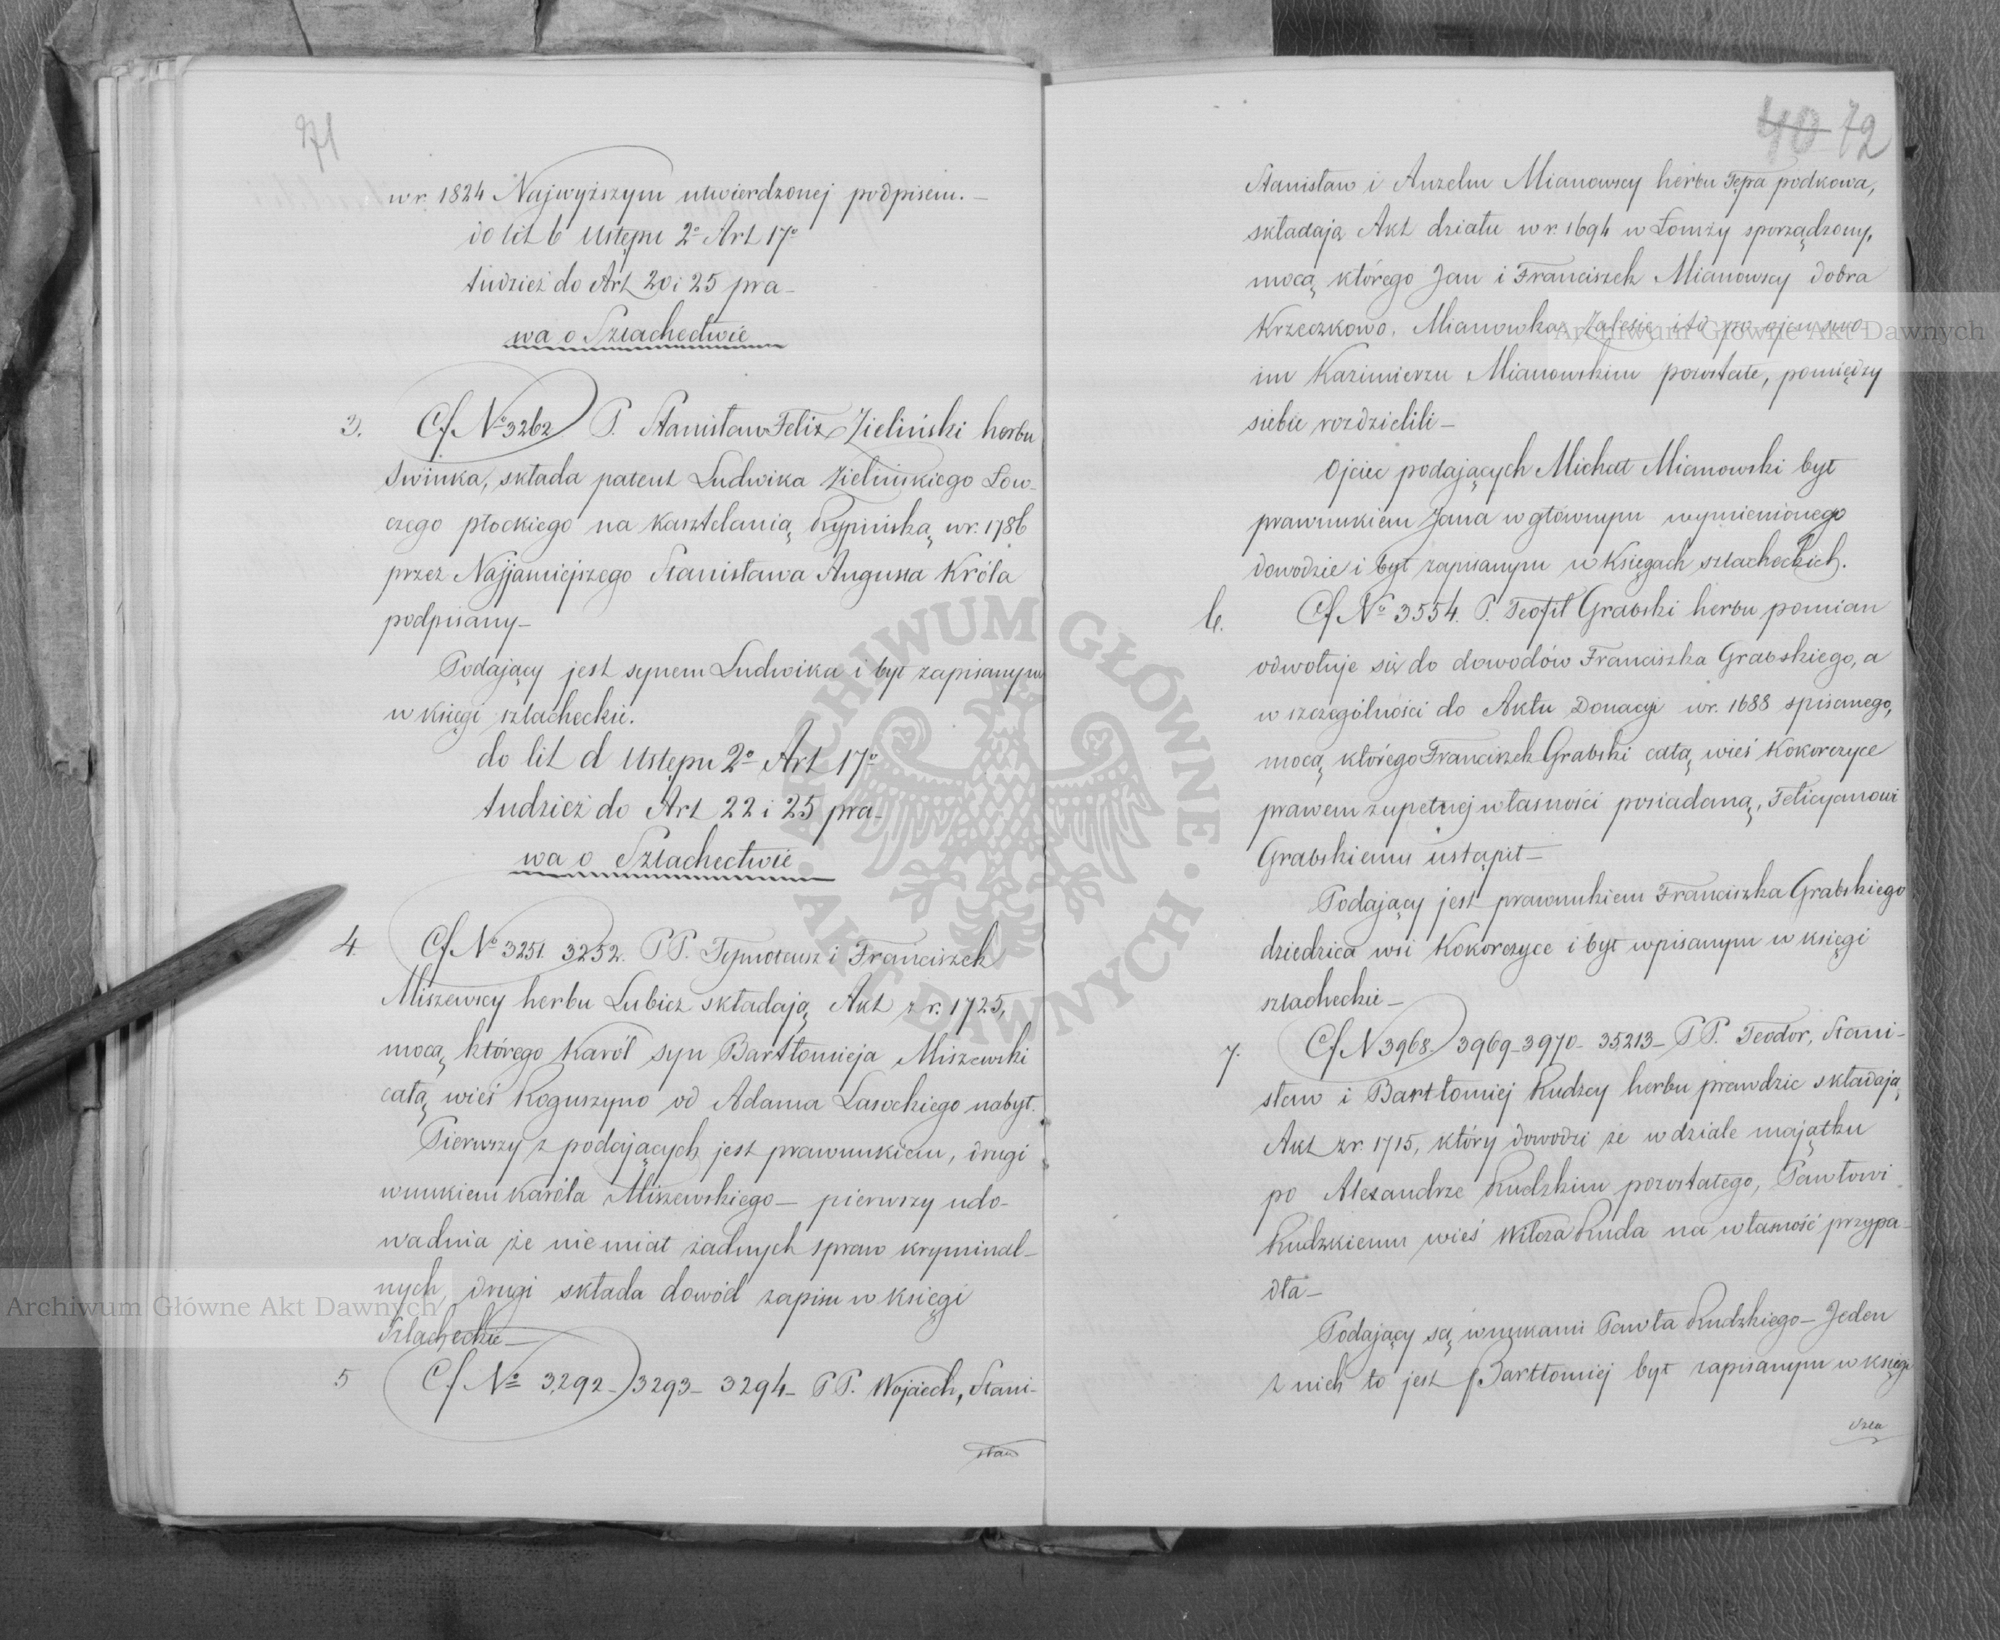 71
w r. 1824 Najwyższym utwierdzonej podpisem. –
do lit b Ustępu 2º Art 17º
tudzież do Art 20 i 25 pra-
wa o Szlachectwie
3. Cf Nº 3262 P. Stanisław Felix Zieliński herbu
Świnka, składa patent Ludwika Zielińskiego Łow-
czego płockiego na kasztelanią Rypińską w r. 1786
przez Najjaśniejszego Stanisława Augusta Króla
podpisany –
Podający jest synem Ludwika i był zapisanym
w księgi szlacheckie.
do lit d Ustępu 2º Art 17º
tudzież do Art 22 i 25 pra-
wa o Szlachectwie
4. Cf Nº 3251. 3252. PP. Tymoteusz i Franciszek
Miszewscy herbu Lubicz składają Akt z r. 1725,
mocą którego Karól syn Bartłomieja Miszewski
całą wieś Koguszyno od Adama Lasockiego nabył.
Pierwszy z podających jest prawnukiem, drugi
wnukiem Karóla Miszewskiego – pierwszy udo-
wadnia że nie miał żadnych spraw kryminal-
nych, drugi składa dowód zapisu w księgi
Szlacheckie –
5 Cf Nº 3,292 – 3293 – 3294 – PP. Wojciech, Stani-
sław
40 72
Stanisław i Anzelm Mianowscy herbu Tępa podkowa,
składają Akt działu w r. 1694 w Łomży sporządzony,
mocą którego Jan i Franciszek Mianowscy dobra
Krzeczkowo. Mianowka Zalesie itd po ojcu swo-
im Kazimierzu Mianowskim pozostałe, pomiędzy
siebie rozdzielili –
Ojciec podających Michał Mianowski był
prawnukiem Jana w głównym wymienionego
dowodzie i był zapisanym w Księgach szlacheckich.
6. Cf Nº 3554. P. Teofil Grabski herbu pomian
odwołuje się do dowodów Franciszka Grabskiego, a
w szczególności do Aktu Donacyi w r. 1688 spisanego,
mocą którego Franciszek Grabski całą wieś Kokorzyce
prawem zupełnej własności posiadaną, Felicyanowi
Grabskiemu ustąpił –
Podający jest prawnukiem Franciszka Grabskiego
dziedzica wsi Kokorzyce i był wpisanym w księgi
szlacheckie –
7. Cf N 3968. 3969 – 3970 – 35,213 – PP. Teodor, Stani-
sław i Bartłomiej Rudzcy herbu prawdzic składają
Akt z r. 1715, który dowodzi że w dziale majątku
po Alexandrze Rudzkim pozostałego, Pawłowi
Rudzkiemu wieś Wilcza Ruda na własność przypa-
dła –
Podający są wnukami Pawła Rudzkiego – Jeden
z nich to jest Bartłomiej był zapisanym w księgi
szla
Archiwum Główne Akt Dawnych
Archiwum Główne Akt Dawnych
ARCHIWUM GŁÓWNE · AKT DAWNYCH ·